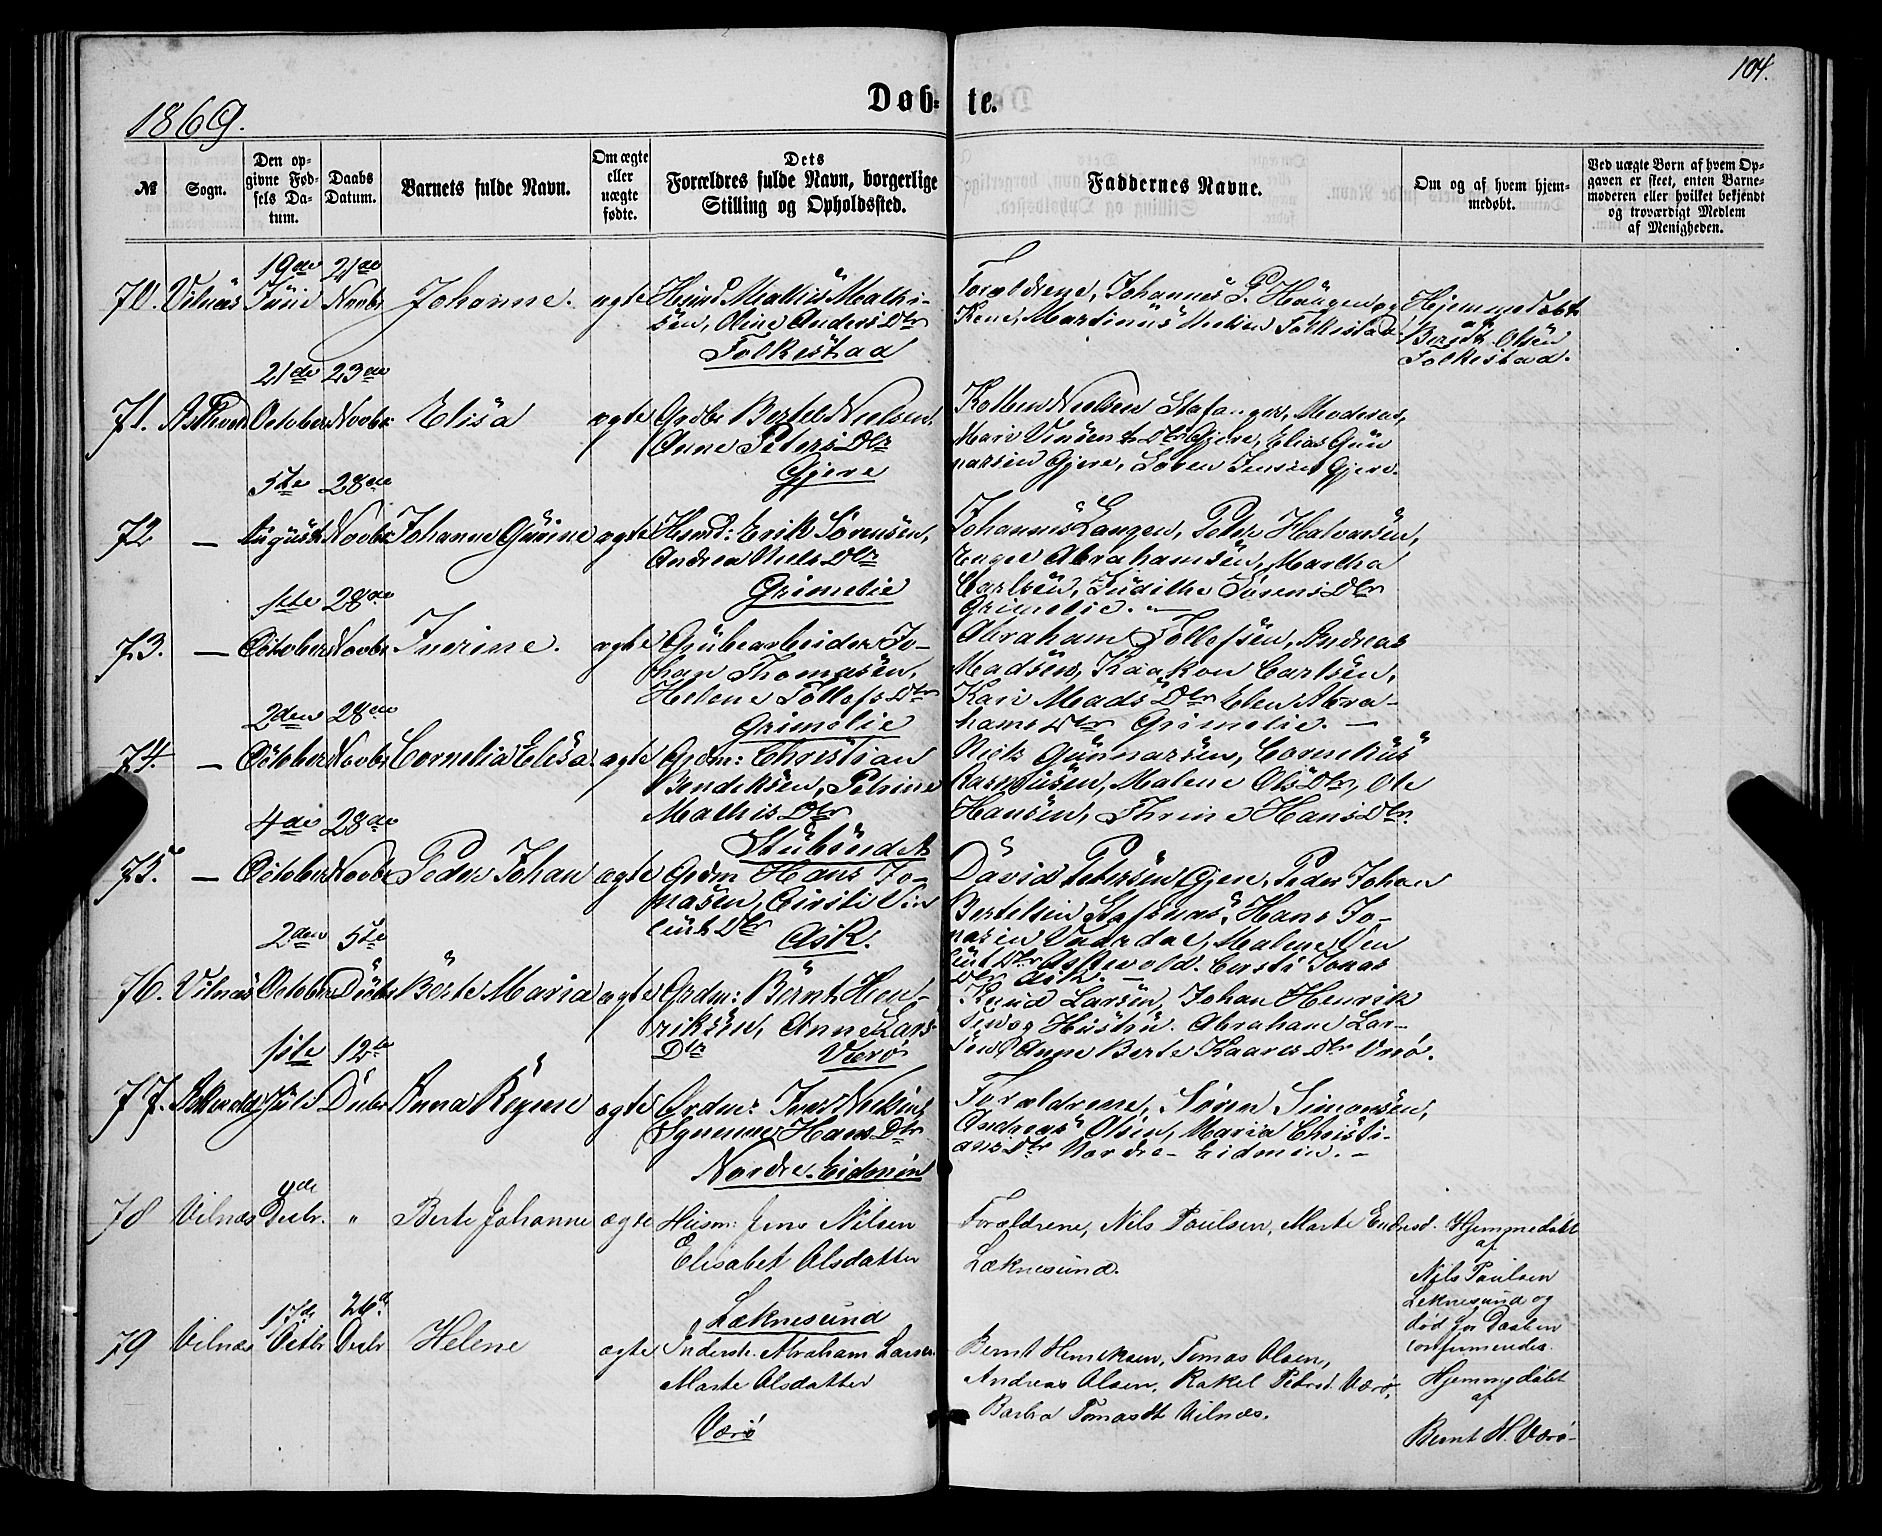 104.
1869.
Døb- te.
№
Sogn.
Den op-
givne Fød-
sels Da-
tum.
Daabs
Datum.
Barnets fulde Navn.
Om ægte
eller
uægte
fødte.
Dets
Forældres fulde Navn, borgerlige
Stilling og Opholdssted.
Faddernes Navne.
Om og af hvem hjem-
medøbt.
Ved uægte Børn af hvem Op-
gaven er skeet, enten Barne-
moderen eller hvilket bekjendt
og troværdigt Medlem
af Menigheden.
19de 21de
70. Vilnæs Juni Novbr Johanne. ægte Husmd Mathis Mathi-
sen, Oline Anders Dtr
Folkestad
Forældrene, Johannes P. Haugen og
Kone, Martinus Folkestad.
Hjemmedøbt
af
Berndt Olsen
Folkestad.
21de 23de
71. Askevold October Novbr Elisa ægte Grdbr Bertel Nielsen,
Anne Peters Dtr
Gjere
Kolben Nielsen Stafanger, Moderen,
Mari Vinsents Dtr Gjere, Elias Gun
narsen Gjere, Søren Jensen Gjere.
5te 28de
72 — August Novbr Johanne Gurine ægte Husmd: Erik Sørensen,
Andrea Niels Dtr
Grimelie
Johannes Langen, Peter Halvorsen,
Abrahamsen, Martha
Carlsen, Judithe Sørens Dtr
Grimelie. —
1ste 28de
73. — October Novbr Inerine. ægte Grubearbeider Jo-
han Thomasen,
Helene Tollefs Dtr
Grimelie
Abraham Tollefsen, Andreas
Madsen, Haakon Carlsen,
Kari Mads Dtr Elen Abra-
hams Dtr Grimelie. —
2den 28de
74. — October Novbr Cornelia Elisa. ægte Grdm: Christian
Bendiksen, Petrine
Mathis Dtr
Stubseidet
Niels Gunnarsen, Cornelius
Rasmusen, Malene Ols Dtr, Ole
Hansen, Thrine Hans Dtr.
4de 28de
75. — October Novbr Peder Johan ægte Grdm Hans Jo-
nasen, Cirsti Vin
cents Dtr
Ask.
David Petersen Gjere, Peder Johan
Bertelsen Stafanes, Hans Jo-
nasen Vaardal, Malene Vin
Dtr Askevold. Cirsti Jonas
Dtr Ask. —
2den 5te
76. Vilnæs October Decbr Berte Maria ægte Grdm: Bernt Hen-
riksen, Anne Lars
Dtr Værø
Knud Larsen, Johan Henrik
sen og Hustru. Abraham Lar-
sen Anne Berte Kaares Dtr Værø.
1ste 12te
77. Askevold Juli Decbr Anna Regine ægte Grdm: Iver Nielsen,
Hans Dtr
Nordre-Eidmin
Forældrene, Søren Simonsen,
Andreas Olsen, Maria Christi-
ans Dtr Nordre-Eidmin. —
9de
78 Vilnæs Decbr. " Berte Johanne ægte Husm: Jens Nilsen
Elisabet Olsdatter
Læknesund
Forældrene, Nils Paulsen, Marte Endresd.
Læknesund.
Hjemmedøbt
af
Nils Paulsen
Leknesund og
død før Daaben
confirmeredes.
17de 26de
79 Vilnæs Octbr Decbr Helene ægte Inderst. Abraham Larsen.
Marte Olsdatter
Værø
Bernt Henriksen, Tomas Olsen,
Andreas Olsen, Rakel Petersd. Værø,
Barbra Tomasdt Vilnæs.
Hjemmedøbt
af
Bernt H. Værø